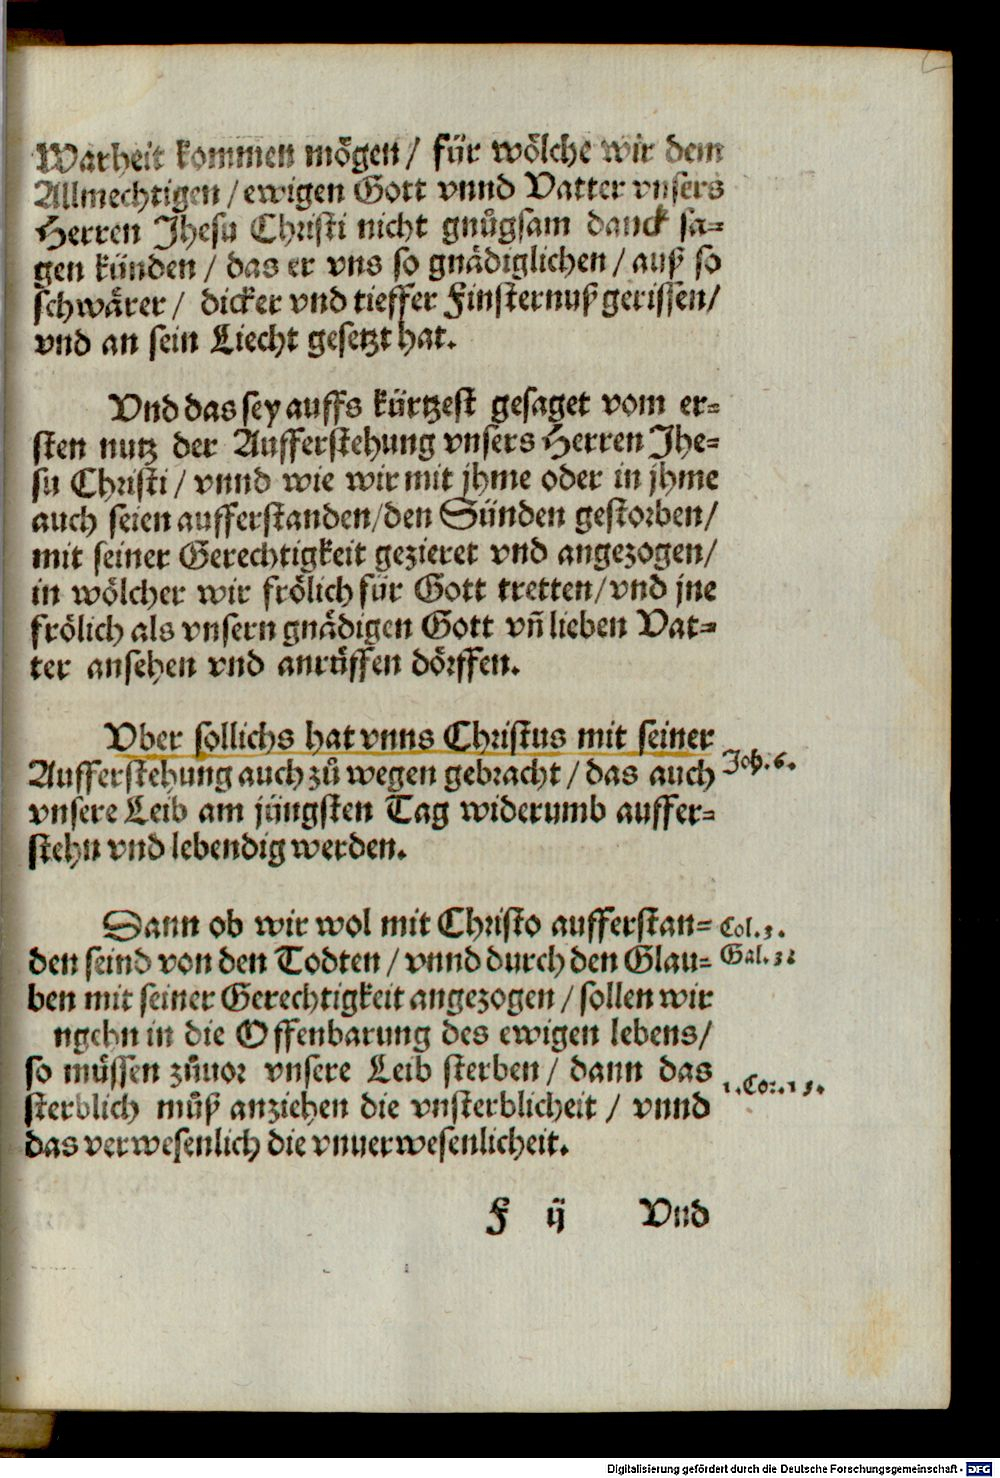 Warheit kommen mögen / für wölche wir dem
Allmechtigen / ewigen Gott vnnd Vatter vnsers
Herren Jhesu Christi nicht gnůgsam danck sa=
gen künden / das er vns so gnädiglichen / auß so
schwärer / dicker vnd tieffer Finsternuß gerissen /
vnd an sein Liecht gesetzt hat.
Vnd das sey auffs kürtzest gesaget vom er=
sten nutz der Aufferstehung vnsers Herren Jhe=
su Christi / vnnd wie wir mit jhme oder in jhme
auch seien aufferstanden / den Sünden gestorben /
mit seiner Gerechtigkeit gezieret vnd angezogen /
in wölcher wir frölich für Gott tretten / vnd jne
frölich als vnsern gnädigen Gott vñ lieben Vat=
ter ansehen vnd anrüffen dörffen.
Vber sollichs hat vnns Christus mit seiner
Aufferstehung auch zů wegen gebracht / das auch
Joh. 6.
vnsere Leib am jüngsten Tag widerumb auffer=
stehn vnd lebendig werden.
Dann ob wir wol mit Christo aufferstan=
Col. 3.
den seind von den Todten / vnnd durch den Glau=
Gal. 3
ben mit seiner Gerechtigkeit angezogen / sollen wir
ngehn in die Offenbarung des ewigen lebens /
so müssen zůuor vnsere Leib sterben / dann das
1. Cor. 15.
sterblich můß anziehen die vnsterblicheit / vnnd
das verwesenlich die vnuerwesenlicheit.
F ij Vnd
Digitalisierung gefördert durch die Deutsche Forschungsgemeinschaft - DFG